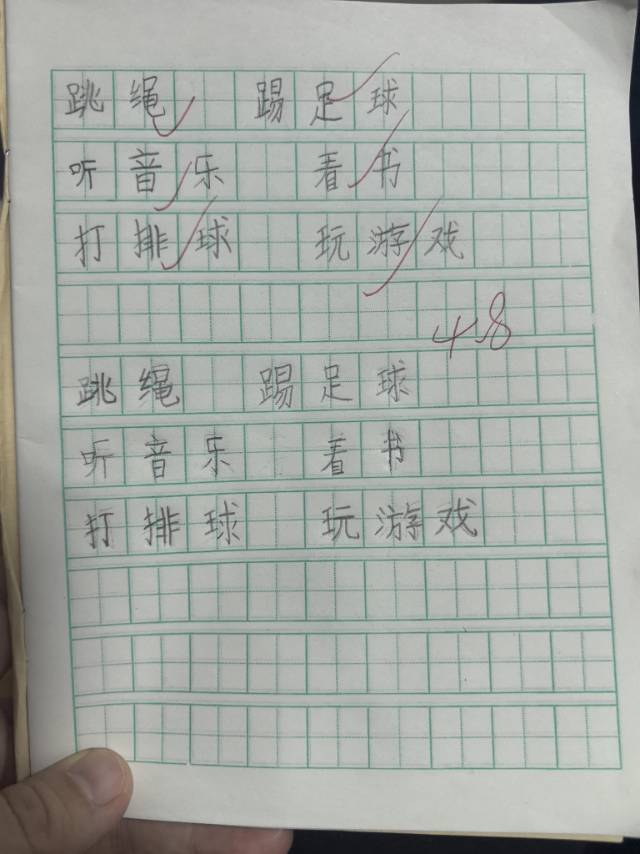 跳绳 踢足球
听音乐 看书
打排球 玩游戏
4.8
跳绳 踢足球
听音乐 看书
打排球 玩游戏